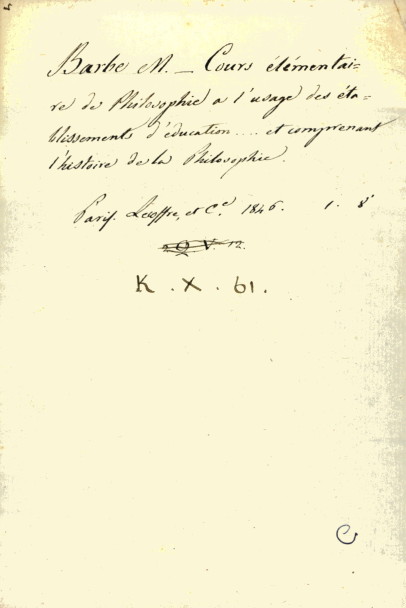 Barbe M. — Cours élémentai=
re de Philosophie a l'usage des éta=
blissements d'éducation.... et comprenant
l'histoire de la Philosophie.
Paris. Lecoffre, et Cᵉ. 1846. 1. 8°
Q. V. 12.
K. X. 61.
C